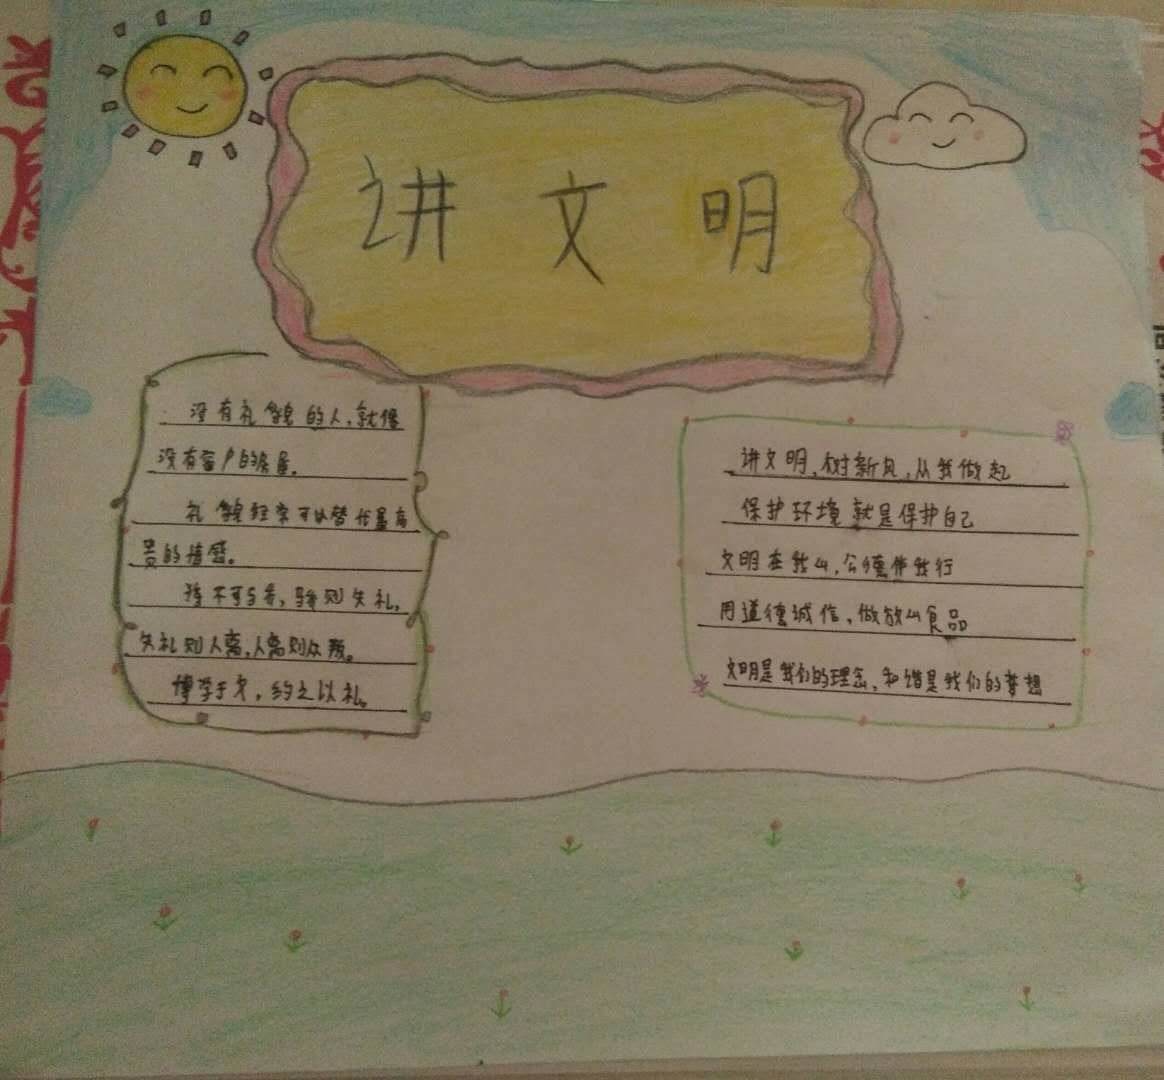 讲文明
没有礼貌的人,就像
没有窗户的房屋。
礼貌经常可以替代最高
贵的情感。
骄则失礼。
失礼则人离,人离则众叛。
博学于文,约之以礼。
讲文明,树新风,从我做起
保护环境就是保护自己
文明在我心,公德伴我行
用道德诚信,做放心食品
文明是我们的理念,和谐是我们的梦想